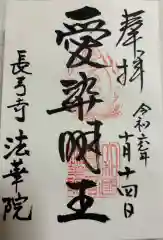 奉拝
令和 年
十月十四日
愛染明王
長弓寺 法華院